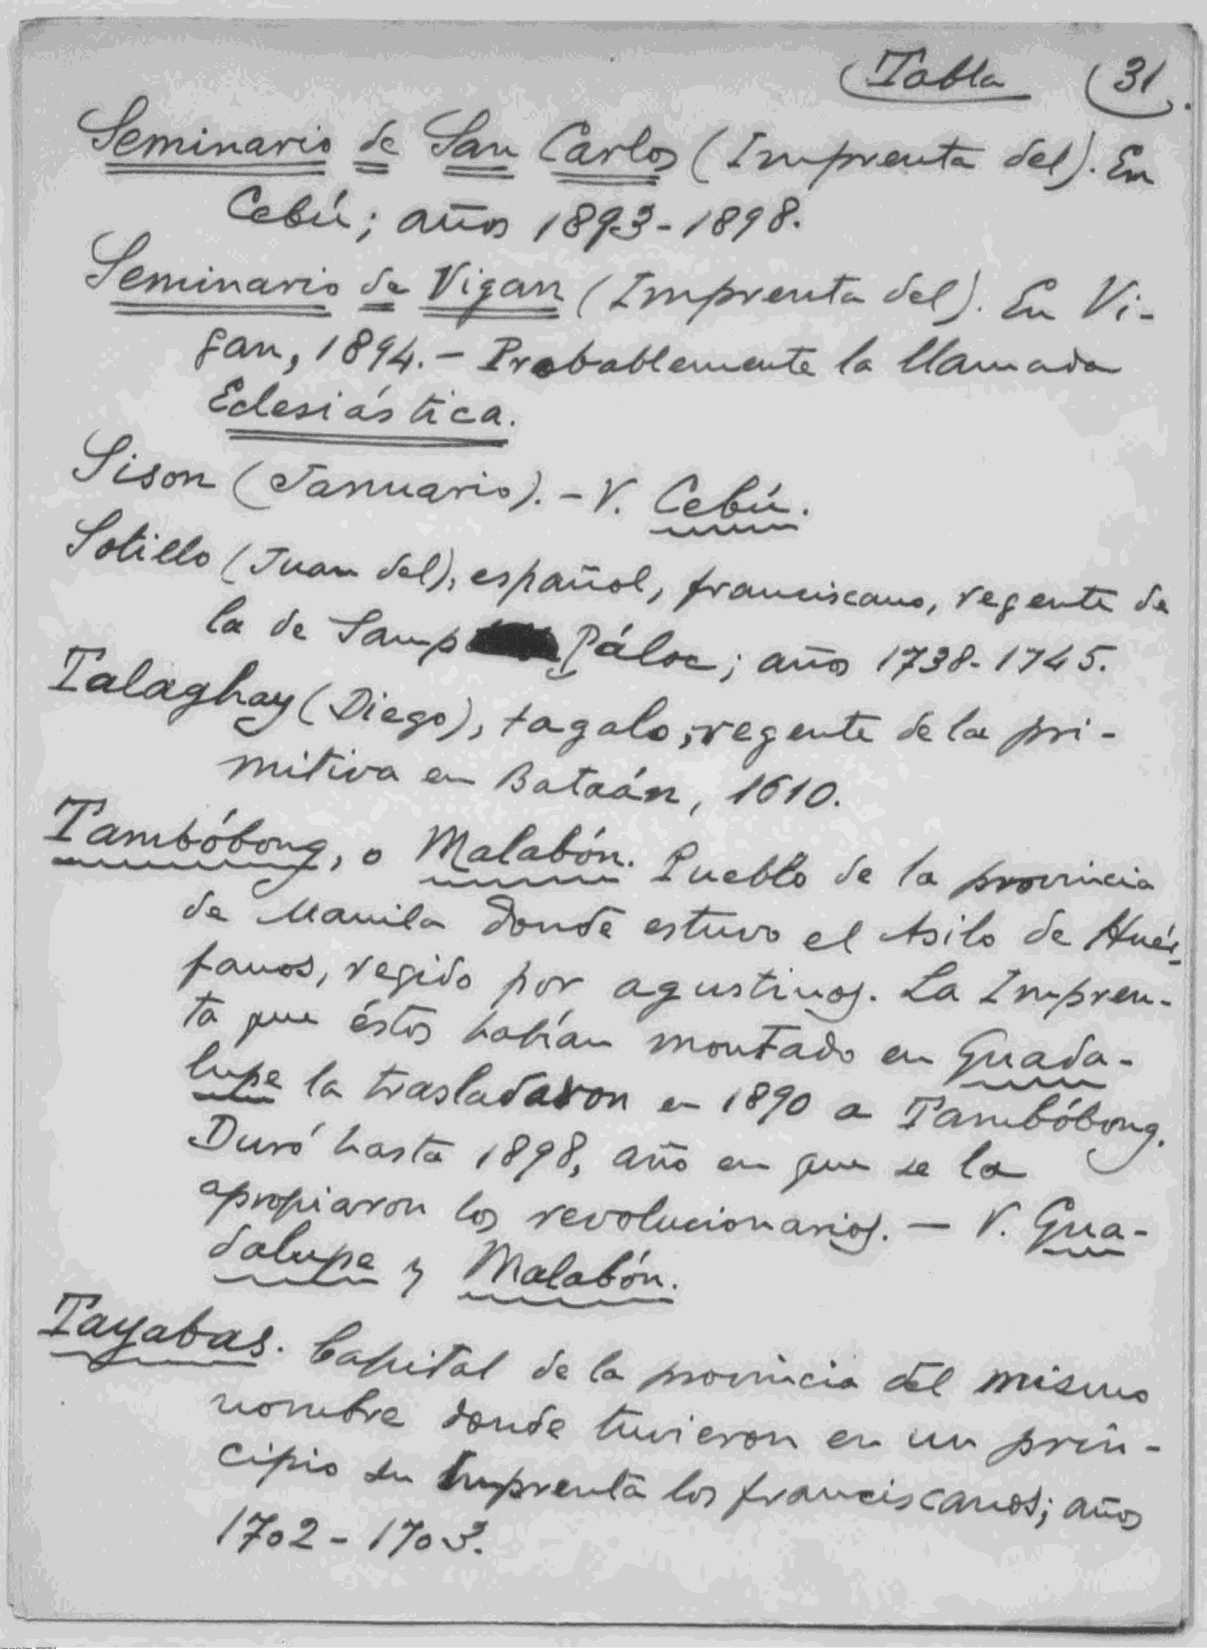 Tabla (31.
Seminario de San Carlos (Imprenta del). En
Cebú; años 1893-1898.
Seminario de Vigan (Imprenta del). En Vi-
gan, 1894.- Probablemente la llamada
Eclesiástica.
Sison (Januario). - V. Cebú.
Sotillo (Juan del), español, franciscano, regente de
la de Samp Páloc; años 1738-1745.
Talaghay (Diego), tagalo, regente de la pri-
mitiva en Bataán, 1610.
Tambóbong, o Malabón. Pueblo de la provincia
de Manila donde estuvo el Asilo de Huér-
fanos, regido por agustinos. La Impren-
ta que éstos habían montado en Guada-
lupe la trasladaron en 1890 a Tambóbong.
Duró hasta 1898, año en que se la
apropiaron los revolucionarios. — V. Gua-
dalupe y Malabón.
Tayabas. Capital de la provincia del mismo
nombre donde tuvieron en un prin-
cipio su Imprenta los franciscanos; años
1702-1703.